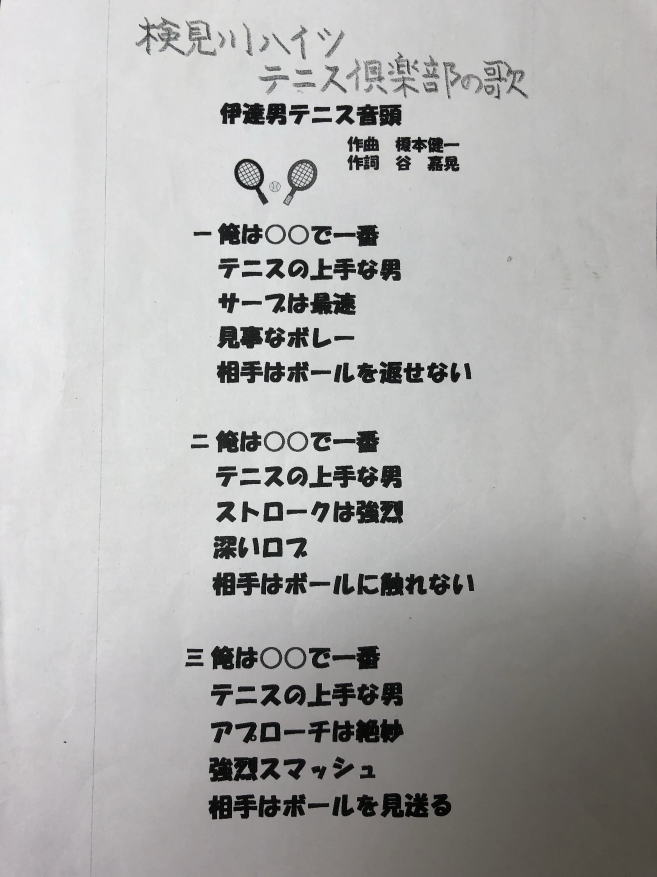 検見川ハイツ
テニス倶楽部の歌
伊達男テニス音頭
作曲　榎本健一
作詞　谷　嘉晃
一 俺は○○で一番
テニスの上手な男
サーブは最速
見事なボレー
相手はボールを返せない
二 俺は○○で一番
テニスの上手な男
ストロークは強烈
深いロブ
相手はボールに触れない
三 俺は○○で一番
テニスの上手な男
アプローチは絶妙
強烈スマッシュ
相手はボールを見送る